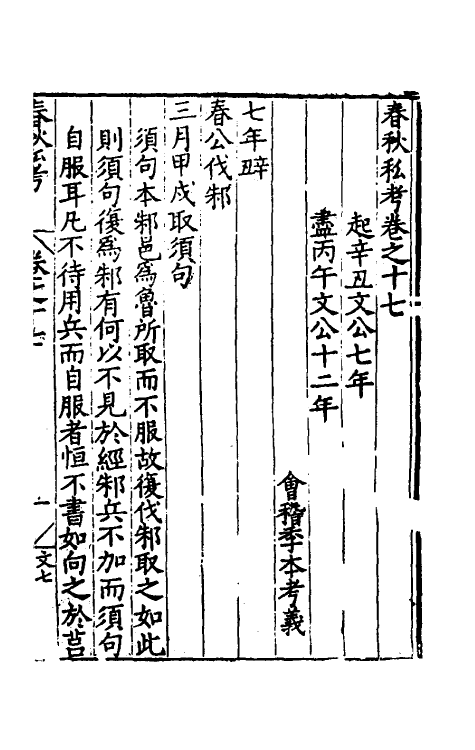 春秋私考卷之十七
起辛丑文公七年
盡丙午文公十二年
會稽季本考義
七年辛丑
春公伐邾
三月甲戌取須句
須句本邾邑爲魯所取而不服故復伐邾取之如此
則須句復爲邾有何以不見於經邾兵不加而須句
自服耳凡不待用兵而自服者恒不書如向之於莒
春秋私考
卷之十七
一
文七